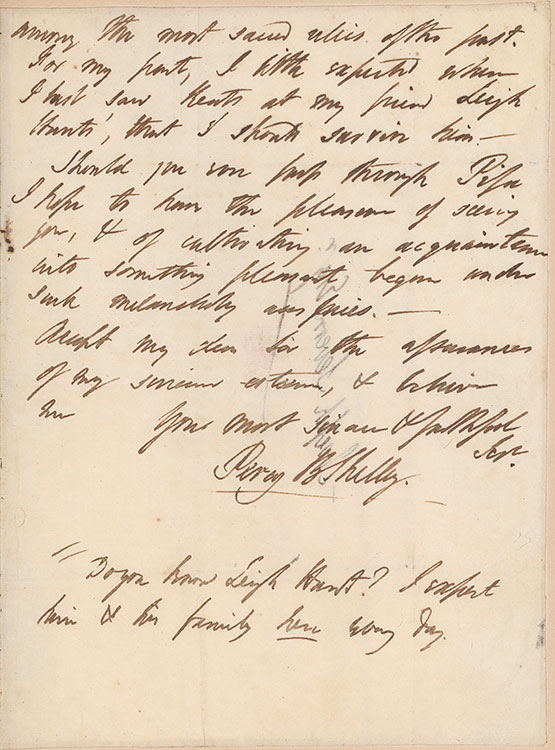 among the most sacred relics of the past.
For my part, I little expected when
I last saw Keats at my friend Leigh
Hunts', that I should survive him.—
Should you ever pass through Pisa
I hope to have the pleasure of seeing
you, & of cultivating an acquaintance
into something pleasant, begun under
such melancholy auspices.—
Accept my dear Sir the assurances
of my sincere esteem, & believe
me Your most sincere & faithful
Sert.
Percy B Shelley.
Do you know Leigh Hunt? I expect
him & his family here every day.